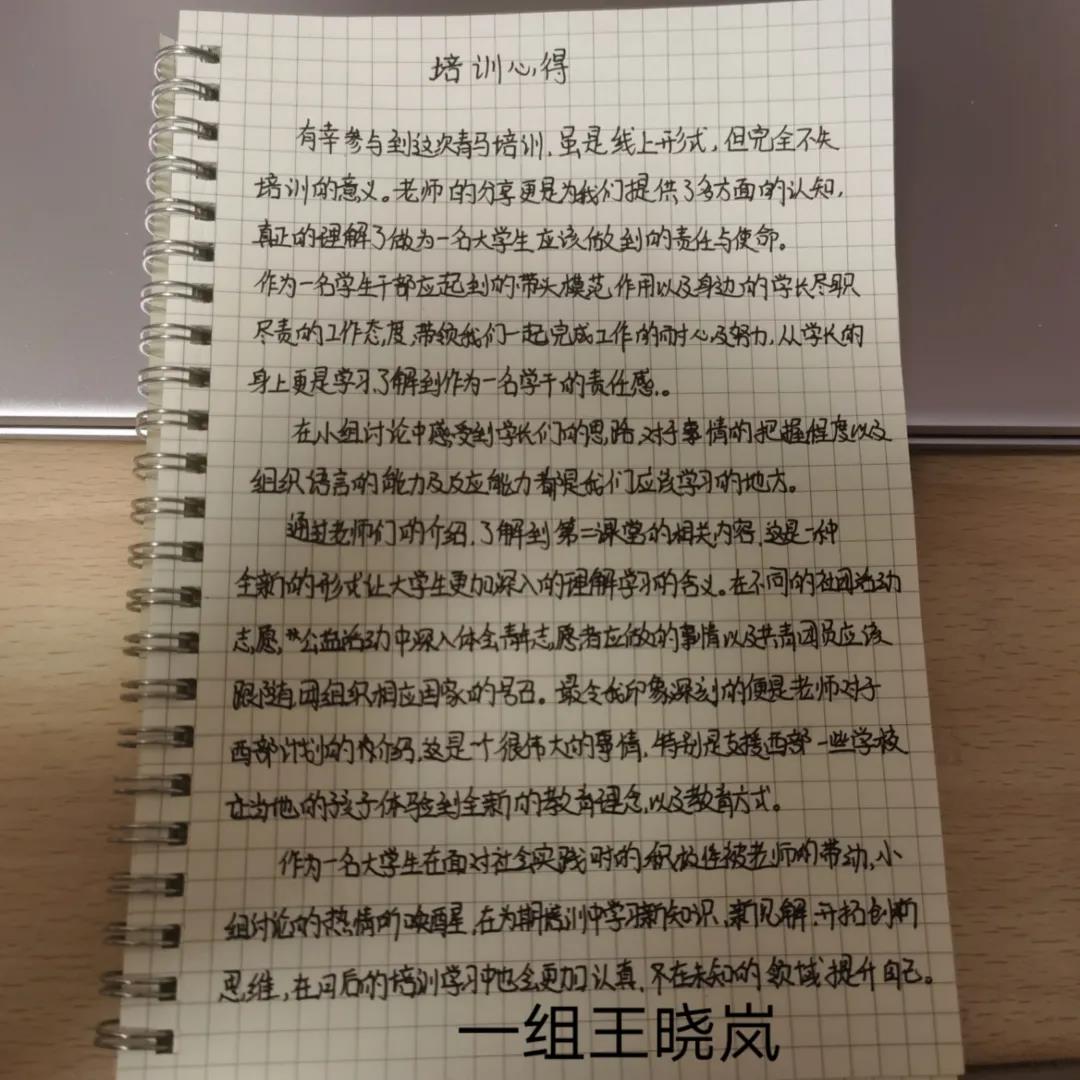 培训心得
有幸参与到这次青马培训，虽是线上形式，但完全不失
培训的意义。老师的分享更是为我们提供了多方面的认知，
真正的理解了做为一名大学生应该做到的责任与使命。
作为一名学生干部应起到的带头模范作用以及身边的学长尽职
尽责的工作态度，带领我们一起完成工作的耐心及努力，从学长的
身上更是学习了解到作为一名学干的责任感。
在小组讨论中感受到学长们的思路，对于事情的把握程度以及
组织语言的能力及反应能力都是我们应该学习的地方。
通过老师们的介绍，了解到第二课堂的相关内容，这是一种
全新的形式让大学生更加深入的理解学习的含义。在不同的社团活动
志愿，公益活动中深入体会青年志愿者应做的事情以及共青团员应该
跟随团组织相应国家的号召。最令我印象深刻的便是老师对于
西部计划的介绍，这是个很伟大的事情，特别是支援西部一些学校
让当地的孩子体验到全新的教育理念，以及教育方式。
作为一名大学生在面对社会实践时的积极性被老师的带动，小
组讨论的热情所唤醒，在为期培训中学习新知识，新见解，开拓创新
思维，在日后的培训学习中也会更加认真，不在未知的领域提升自己。
一组王晓岚